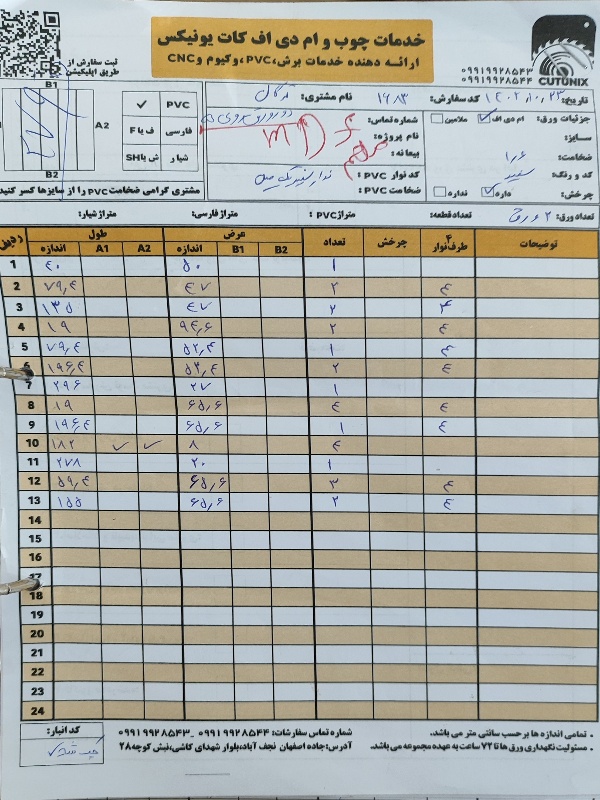 خدمات چوب و ام دی اف کات یونیکس
ارائه دهنده خدمات برش، PVC، وکیوم و CNC
ثبت سفارش از
طریق اپلیکیشن
۰۹۹۱۹۹۲۸۵۴۳
۰۹۹۱۹۹۲۸۵۴۴
CUTUNIX
B1
A2
B2
PVC ✓
فارسی ف یا F
شیار ش یا SH
مشتری گرامی ضخامت PVC را از سایزها کسر کنید
نام مشتری:
شماره تماس:
نام پروژه:
بیعانه:
کد نوار PVC:
ضخامت PVC:
تاریخ:
کد سفارش: ۱۶۸۳
جزئیات ورق: ام دی اف ✓ ملامین
سایز:
ضخامت: ۱٫۶
کد و رنگ: سفید
چرخش: دارد ✓ ندارد
تعداد ورق: ۲ ورق تعداد قطعه: متراژ PVC: متراژ فارسی: متراژ شیار:
ردیف طول عرض تعداد چرخش ۴ طرف نوار توضیحات
اندازه A1 A2 اندازه B1 B2
1 ۴۰ ۵۰ ۱
2 ۷۹٫۴ ۴۷ ۲ ۴
3 ۱۳۵ ۴۷ ۲ ۴
4 ۱۹ ۹۴٫۶ ۲ ۴
5 ۷۹٫۴ ۵۲٫۴ ۱ ۴
6 ۱۹۶٫۴ ۵۲٫۴ ۲ ۴
7 ۲۹۶ ۲۷ ۱
8 ۱۹ ۶۵٫۶ ۴ ۴
9 ۱۹۶٫۴ ۶۵٫۶ ۱ ۴
10 ۱۸۲ ✓ ✓ ۸ ۴
11 ۲۷۸ ۲۰ ۱
12 ۵۹٫۴ ۶۵٫۶ ۳ ۴
13 ۱۵۵ ۶۵٫۶ ۲ ۴
14
15
16
17
18
19
20
21
22
23
24
• تمامی اندازه ها بر حسب سانتی متر می باشد.
• مسئولیت نگهداری ورق ها تا ۷۲ ساعت به عهده مجموعه می باشد.
شماره تماس سفارشات: ۰۹۹۱۹۹۲۸۵۴۴ - ۰۹۹۱۹۹۲۸۵۴۳
آدرس: جاده اصفهان نجف آباد، بلوار شهدای کاشی، نبش کوچه ۲۸
کد انبار:
چک شد